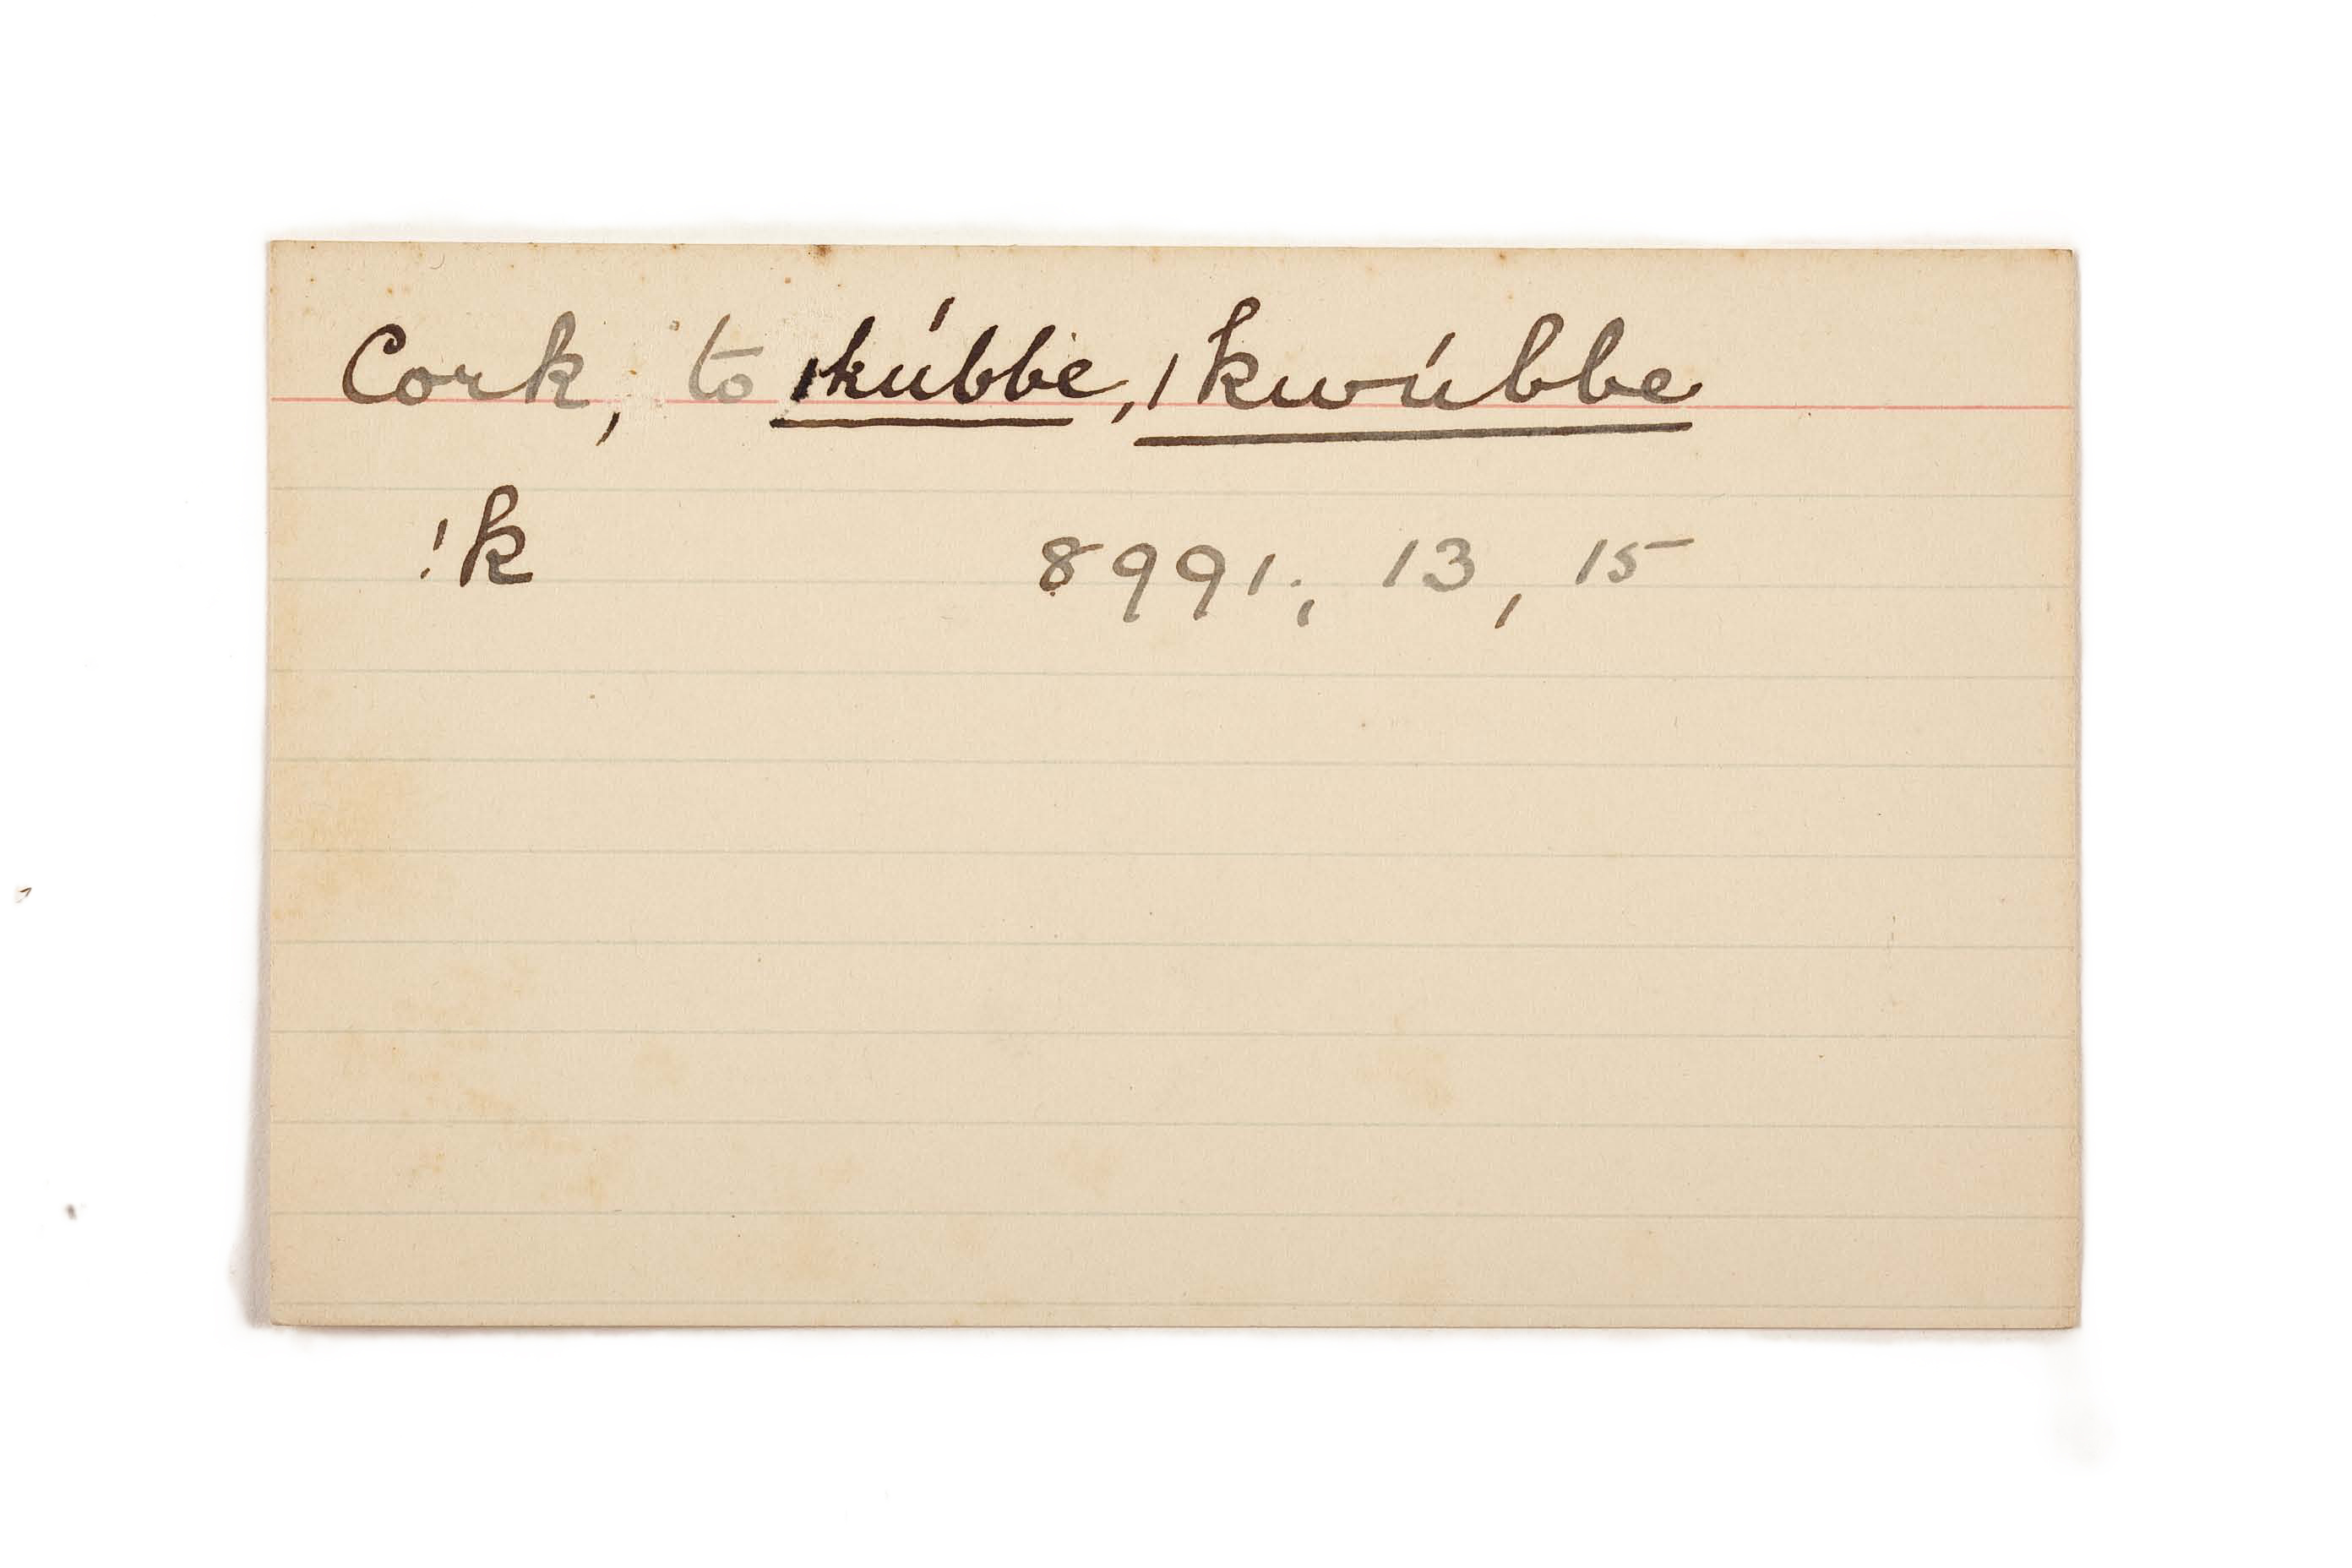 Cork, to ǀkúbbe, ǀkwúbbe
!k 8991; 13, 15